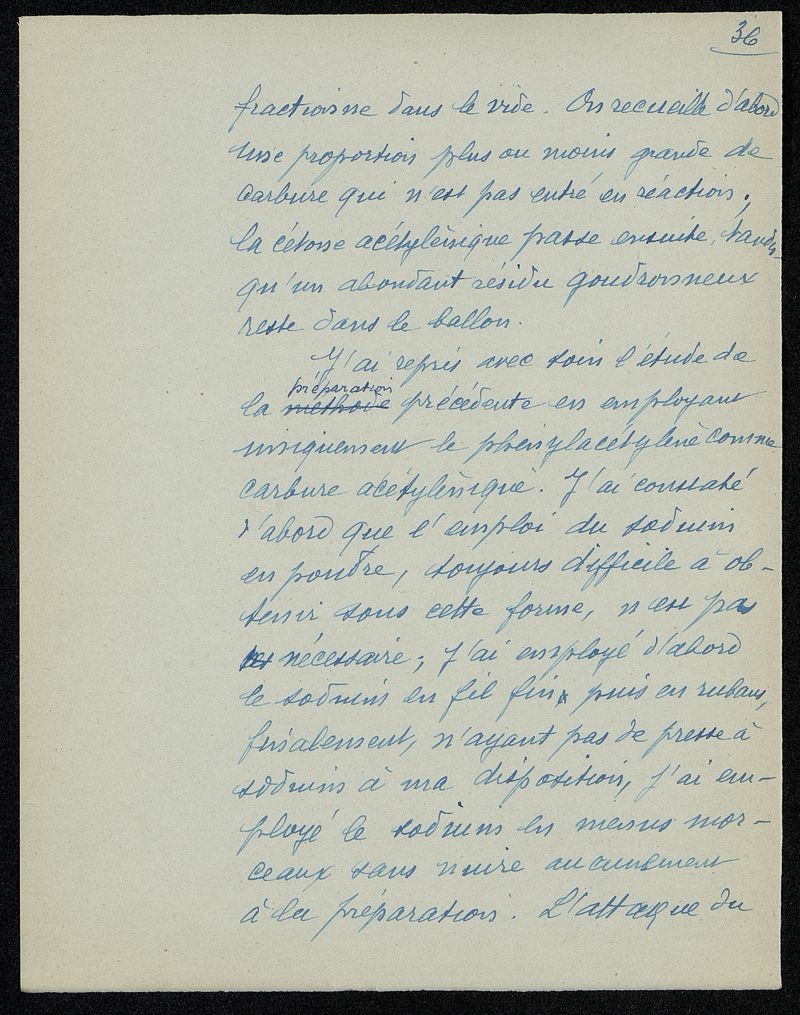 36
fractionne dans le vide. On recueille d'abord
une proportion plus ou moins grande de
carbure qui n'est pas entré en réaction ;
la cétone acétylénique passe ensuite, tandis
qu'un abondant résidu goudronneux
reste dans le ballon.
J'ai repris avec soin l'étude de
préparation
la méthode précédente en employant
uniquement le phénylacétylène comme
carbure acétylénique. J'ai constaté
d'abord que l'emploi du sodium
en poudre, toujours difficile à ob-
tenir sous cette forme, n'est pas
nécessaire ; j'ai employé d'abord
le sodium en fil fin, puis en ruban,
finalement, n'ayant pas de presse à
sodium à ma disposition, j'ai em-
ployé le sodium en menus mor-
ceaux sans nuire aucunement
à la préparation. L'attaque du